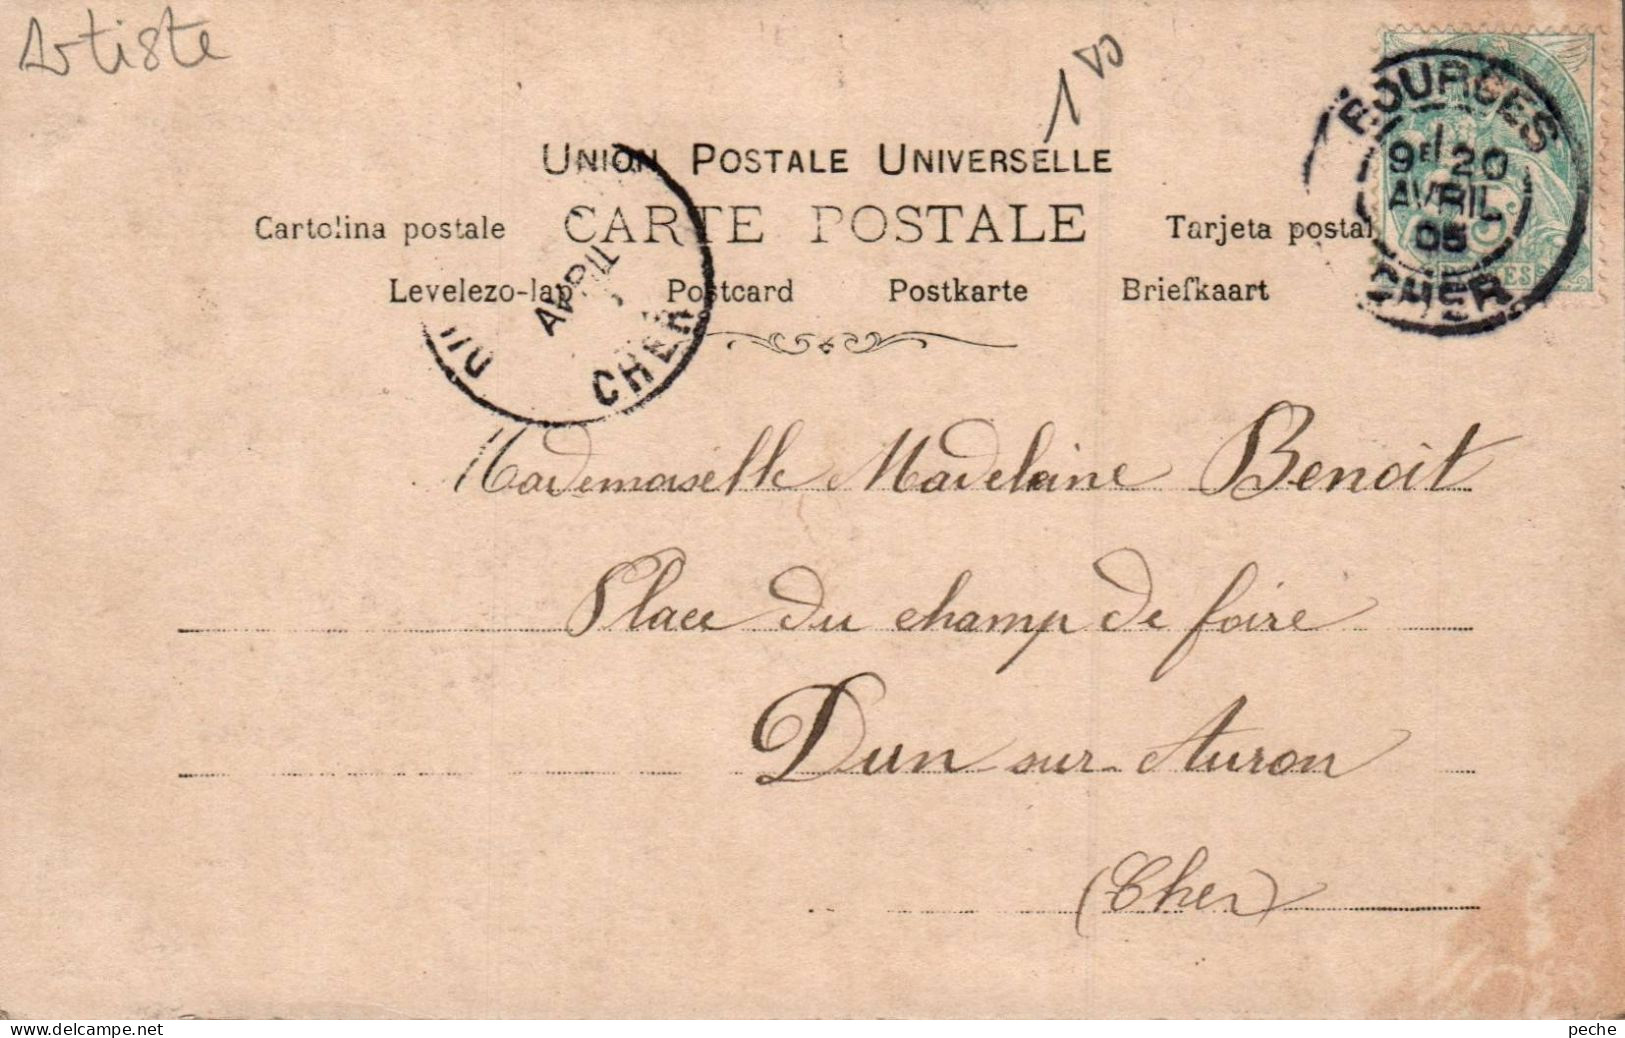 Artiste
UNION POSTALE UNIVERSELLE
Cartolina postale CARTE POSTALE Tarjeta postal
Levelezo-lap Postcard Postkarte Briefkaart
BOURGES
9E 20
AVRIL
05
CHER
AVRIL
CHER
Mademoiselle Madeleine Benoit
Place du champ de foire
Dun sur Auron
(Cher)
peche